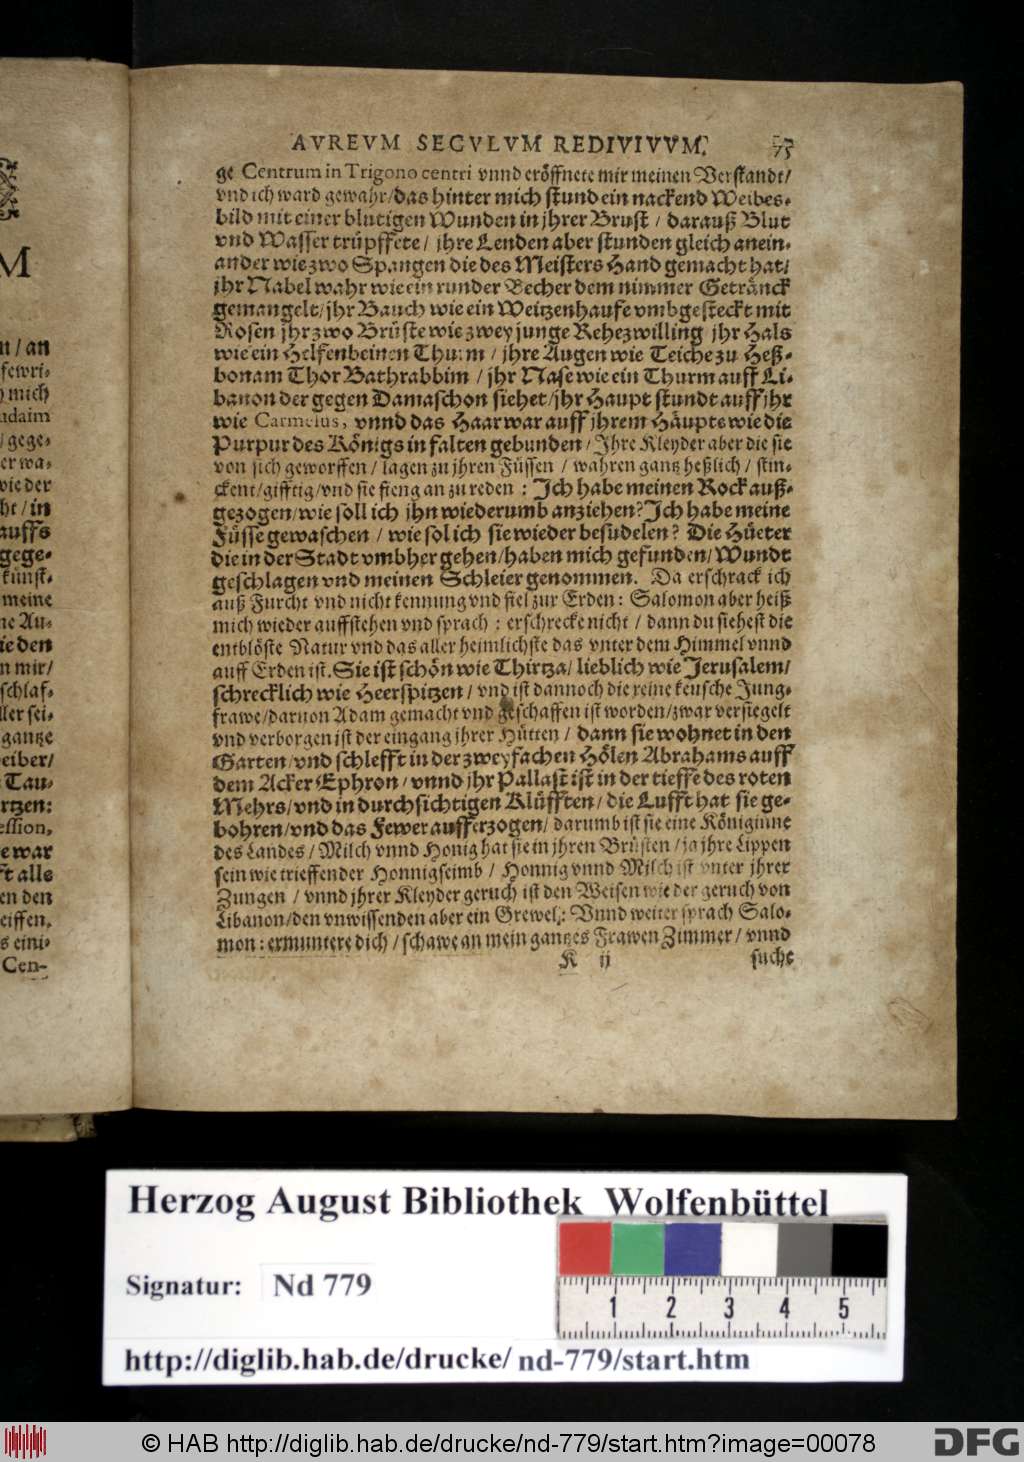 AVREVM SECVLVM REDIVIVVM. 75
ge Centrum in Trigono centri vnnd eröffnete mir meinen Verstandt/
vnd ich ward gewahr/das hinter mich stund ein nackend Weibes-
bild mit einer blutigen Wunden in jhrer Brust / darauß Blut
vnd Wasser trüpffete / jhre Lenden aber stunden gleich anein-
ander wie zwo Spangen die des Meisters Hand gemacht hat/
jhr Nabel wahr wie ein runder Becher dem nimmer Getränck
gemangelt/jhr Bauch wie ein Weitzenhaufe vmbgesteckt mit
Rosen jhr zwo Brüste wie zwey junge Rehezwilling jhr Hals
wie ein Helfenbeinen Thurm / jhre Augen wie Teiche zu Heß-
bon am Thor Bathrabbim / jhr Nase wie ein Thurm auff Li-
banon der gegen Damaschon siehet/jhr Haupt stundt auff jhr
wie Carmelus, vnnd das Haar war auff jhrem Häupte wie die
Purpur des Königs in falten gebunden / Ihre Kleyder aber die sie
von sich geworffen / lagen zu jhren Füssen / wahren gantz heßlich / stin-
ckent/gifftig/vnd sie fieng an zu reden : Ich habe meinen Rock auß-
gezogen/wie soll ich jhn wiederumb anziehen? Ich habe meine
Füsse gewaschen / wie sol ich sie wieder besudelen? Die Hüeter
die in der Stadt vmbher gehen/haben mich gefunden/Wundt
geschlagen vnd meinen Schleier genommen. Da erschrack ich
auß Furcht vnd nicht kennung vnd fiel zur Erden : Salomon aber heiß
mich wieder auffstehen vnd sprach : erschrecke nicht / dann du siehest die
entblöste Natur vnd das aller heimlichste das vnter dem Himmel vnnd
auff Erden ist. Sie ist schön wie Thirtza/ lieblich wie Jerusalem/
schrecklich wie Heerspitzen / vnd ist dannoch die reine keusche Jung-
frawe/daruon Adam gemacht vnd geschaffen ist worden/zwar versiegelt
vnd verborgen ist der eingang jhrer Hütten / dann sie wohnet in den
Garten/vnd schlefft in der zweyfachen Hölen Abrahams auff
dem Acker Ephron / vnnd jhr Pallast ist in der tieffe des roten
Mehrs/vnd in durchsichtigen Klüfften/ die Lufft hat sie ge-
bohren/vnd das Fewer aufferzogen/ darumb ist sie eine Königinne
des Landes / Milch vnnd Honig hat sie in jhren Brüsten / ja jhre Lippen
sein wie trieffender Honnigseimb / Honnig vnnd Milch ist vnter jhrer
Zungen / vnnd jhrer Kleyder geruch ist den Weisen wie der geruch von
Libanon/den vnwissenden aber ein Grewel: Vnnd weiter sprach Salo-
mon : ermuntere dich / schawe an mein gantzes Frawen Zimmer / vnnd
K ij suche
M
n / an
fewri-
mich
udaim
/ gege-
er wa-
wie der
ht / in
auffs
gege-
künst-
meine
ne Au-
ie den
n mir/
schlaf-
ller sei-
gantze
eiber/
Tau-
rtzen:
ession,
e war
ft alls
en den
eiffen,
s eini-
Cen-
Herzog August Bibliothek Wolfenbüttel
Signatur: Nd 779
1 2 3 4 5
http://diglib.hab.de/drucke/ nd-779/start.htm
© HAB http://diglib.hab.de/drucke/nd-779/start.htm?image=00078
DFG